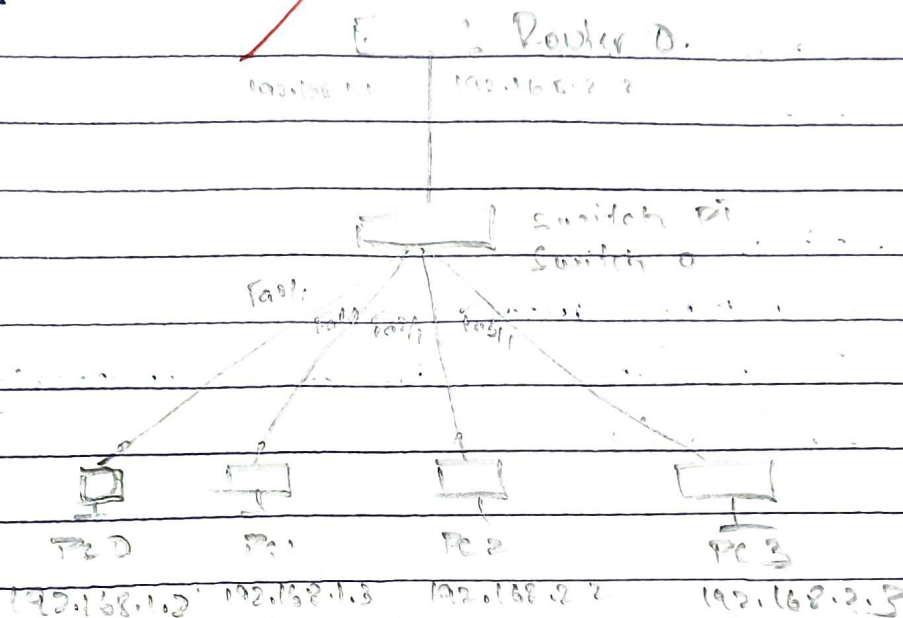 Router 0.
192.168.1.1 192.168.2.2
Switch
Switch 0
Fa0/1
Fa2/1 Fa3/1
PC0 PC1 PC2 PC3
192.168.1.2 192.168.1.3 192.168.2.2 192.168.2.3